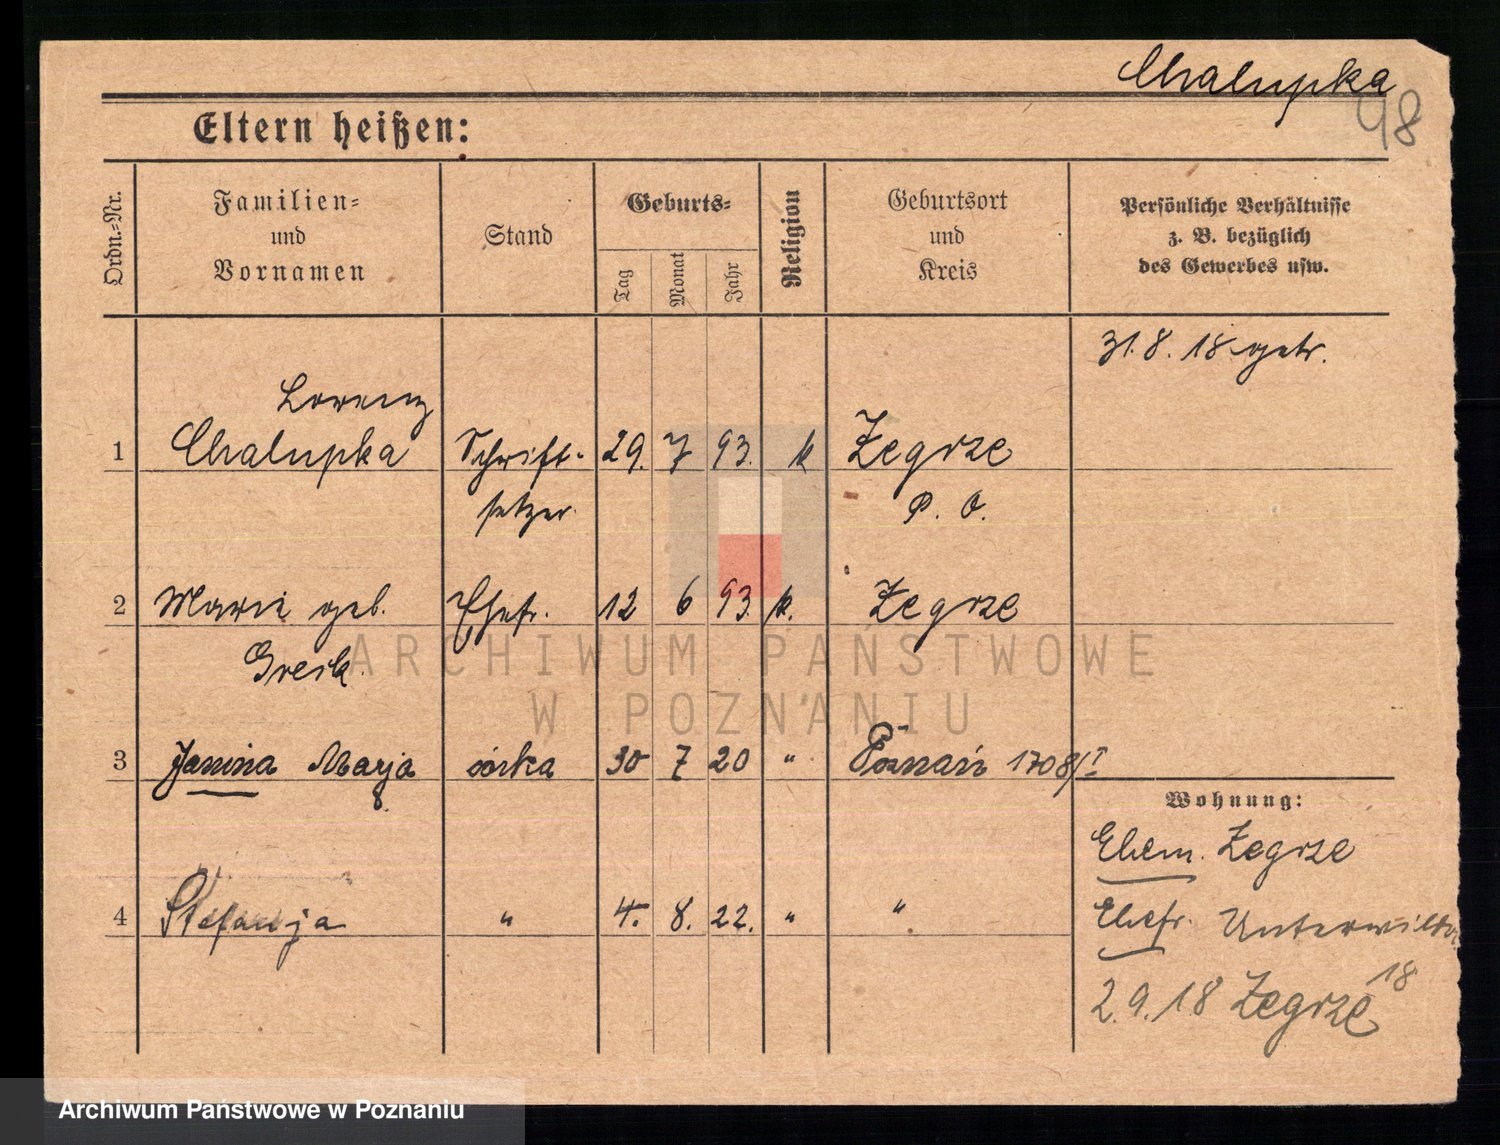 Chalupka
48
Eltern heißen:
Ordn.-Nr.
Familien-
und
Vornamen
Stand
Geburts-
Tag
Monat
Jahr
Religion
Geburtsort
und
Kreis
Persönliche Verhältnisse
z. B. bezüglich
des Gewerbes usw.
31. 8. 18 getr.
Lorenz
1 Chalupka Schrift- 29. 7 93. k Zegrze
setzer P. O.
2 Marie geb. Ehefr. 12 6 93. k. Zegrze
3 Janina Marja córka 30 7 20 " Poznań 1708/I
Wohnung:
Ehem. Zegrze
4 Stefanja " 4. 8. 22. " "
Ehefr. Unterwilda
18
2.9.18 Zegrze
ARCHIWUM PAŃSTWOWE
W POZNANIU
Archiwum Państwowe w Poznaniu